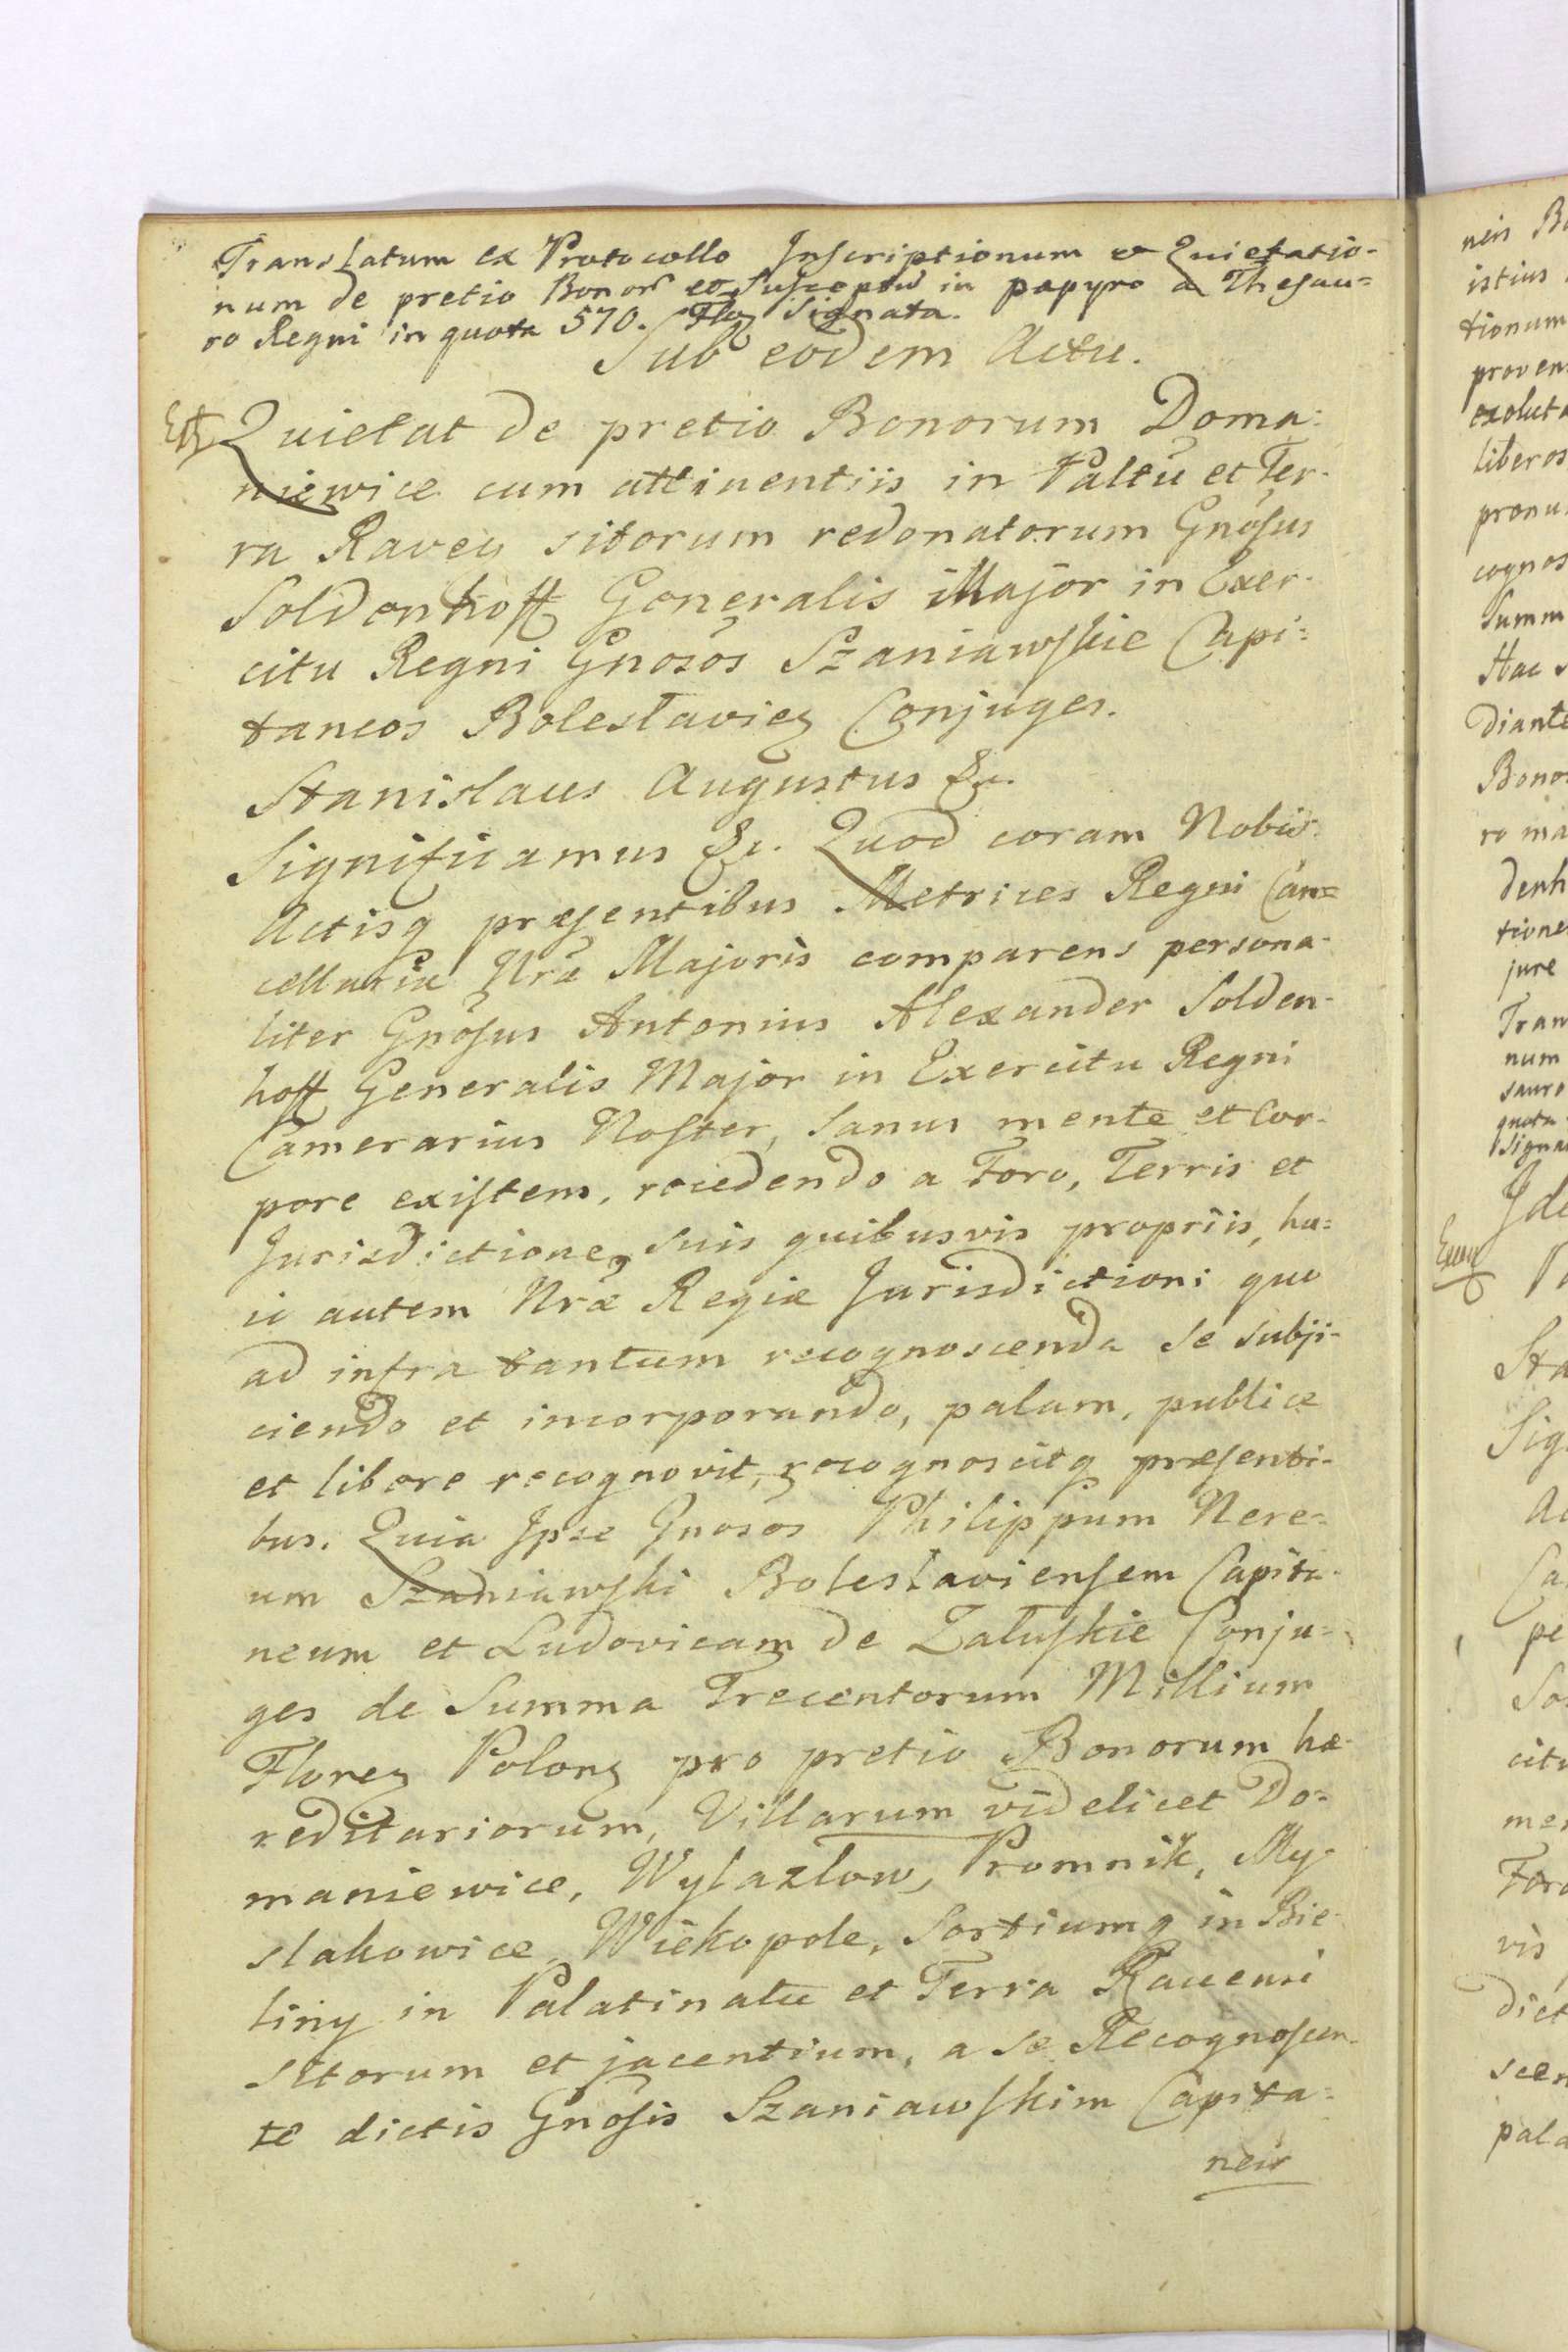 Translatum ex Protocollo Inscriptionum et Quietatio-
num de pretio Bonor et Susceptū in papyro a Thesau=
ro Regni in quota 570. Flo signata.
Sub eodem Actu.
Quietat de pretio Bonorum Doma:
niewice cum attinentiis in Paltū et Ter-
ra Raven sitorum redonatorum Gnōsus
Soldenhoff Generalis Major in Exer-
citu Regni Gnosōs Szaniawskie Capi=
taneos Bolesłavien Conjuges.
Stanislaus Augustus &c.
Significamus &c. Quod coram Nobis
Actisq præsentibus Metrices Regni Can=
cellariæ Nræ Majoris comparens persona-
liter Gnōsus Antonius Alexander Solden-
hoff Generalis Major in Exercitu Regni
Camerarius Noster, sanus mente et Cor-
pore existens, recedendo a Foro, Terris et
Jurisdictione suis quibusvis propriis, hu=
ic autem Nræ Regiæ Jurisdictioni quo
ad infra tantum recognoscenda se subji-
ciendo et incorporando, palam, publice
et libere recognovit, recognoscitq præsenti-
bus. Quia Ipse Gnosōs Philippum Nere=
um Szaniawski Bolesłaviensem Capita-
neum et Ludovicam de Załuskie Conju=
ges de Summa Trecentorum Millium
Floren Polon pro pretio Bonorum hæ-
reditariorum, Villarum videlicet Do=
maniewice, Wylazłow, Promnik, My-
slakowice, Wiekopole, Sortiumq in Bie-
liny in Palatinatu et Terra Ravensi
sitorum et jacentium, a se Recognoscen-
te dictis Gnōsis Szaniawskim Capita=
neis
nein
istius
tionum
proven
exoluta
liberos
pronu
cognos
Summ
Hac
diante
Bono
ro ma
denh
tione
jure
Tran
num
sauro
quota
Signa
Ide
Sta
Sig
Ac
Ca
pe
So
citu
me
Foro
vis
dict
scen
pala